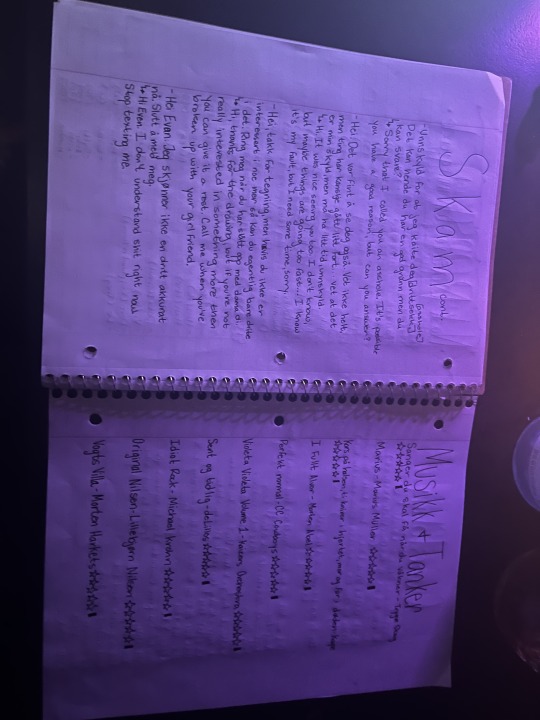 Skam cont.
-Unnskyld for at jeg kalte deg drittsekk.
Det kan hende du har en god grunn men du
kan svare?
↳ Sorry that I called you an asshole. It's possible
you have a good reason, but can you answer?
-Hei! Det var fint å se deg også. Vet ikke helt,
men ting har kanskje gått litt fort... Vet at det
er min skyld, men må ha litt tid, unnskyld
↳ Hi, It was nice seeing you too. I don't know,
but maybe things are going too fast.. I know
it's my fault, but I need some time, sorry.
-Hei, takk for tegning, men hvis du ikke er
interessert i noe mer så kan du egentlig bare drite
i det. Ring meg når du har slått opp med dama di
↳ Hi, thanks for the drawing, but if you're not
really interested in something more then
you can give it a rest. Call me when you've
broken up with your girlfriend.
-Hei Even. Jeg skjønner ikke en dritt akkurat
nå. Slutt å mess meg.
↳ Hi Even. I don't understand shit right now.
Stop texting me.
Musikk + Tanker
Sanger du skal få
Marius - Marius Müller ☆☆☆☆☆
I Fullt Alvor - Morten Abel ☆☆☆☆
Perfekt normal - CC Cowboys ☆☆☆☆☆
Violeta Violeta Volume 1 - Kaizers Orchestra ☆☆☆☆☆
Sent og tidlig - deLillos ☆☆☆☆☆
Idiot Rock - Michael Krohn ☆☆☆☆☆
Original Nilsen - Lillebjørn Nilsen ☆☆☆☆☆
Vogts Villa - Morten Harket ☆☆☆☆☆